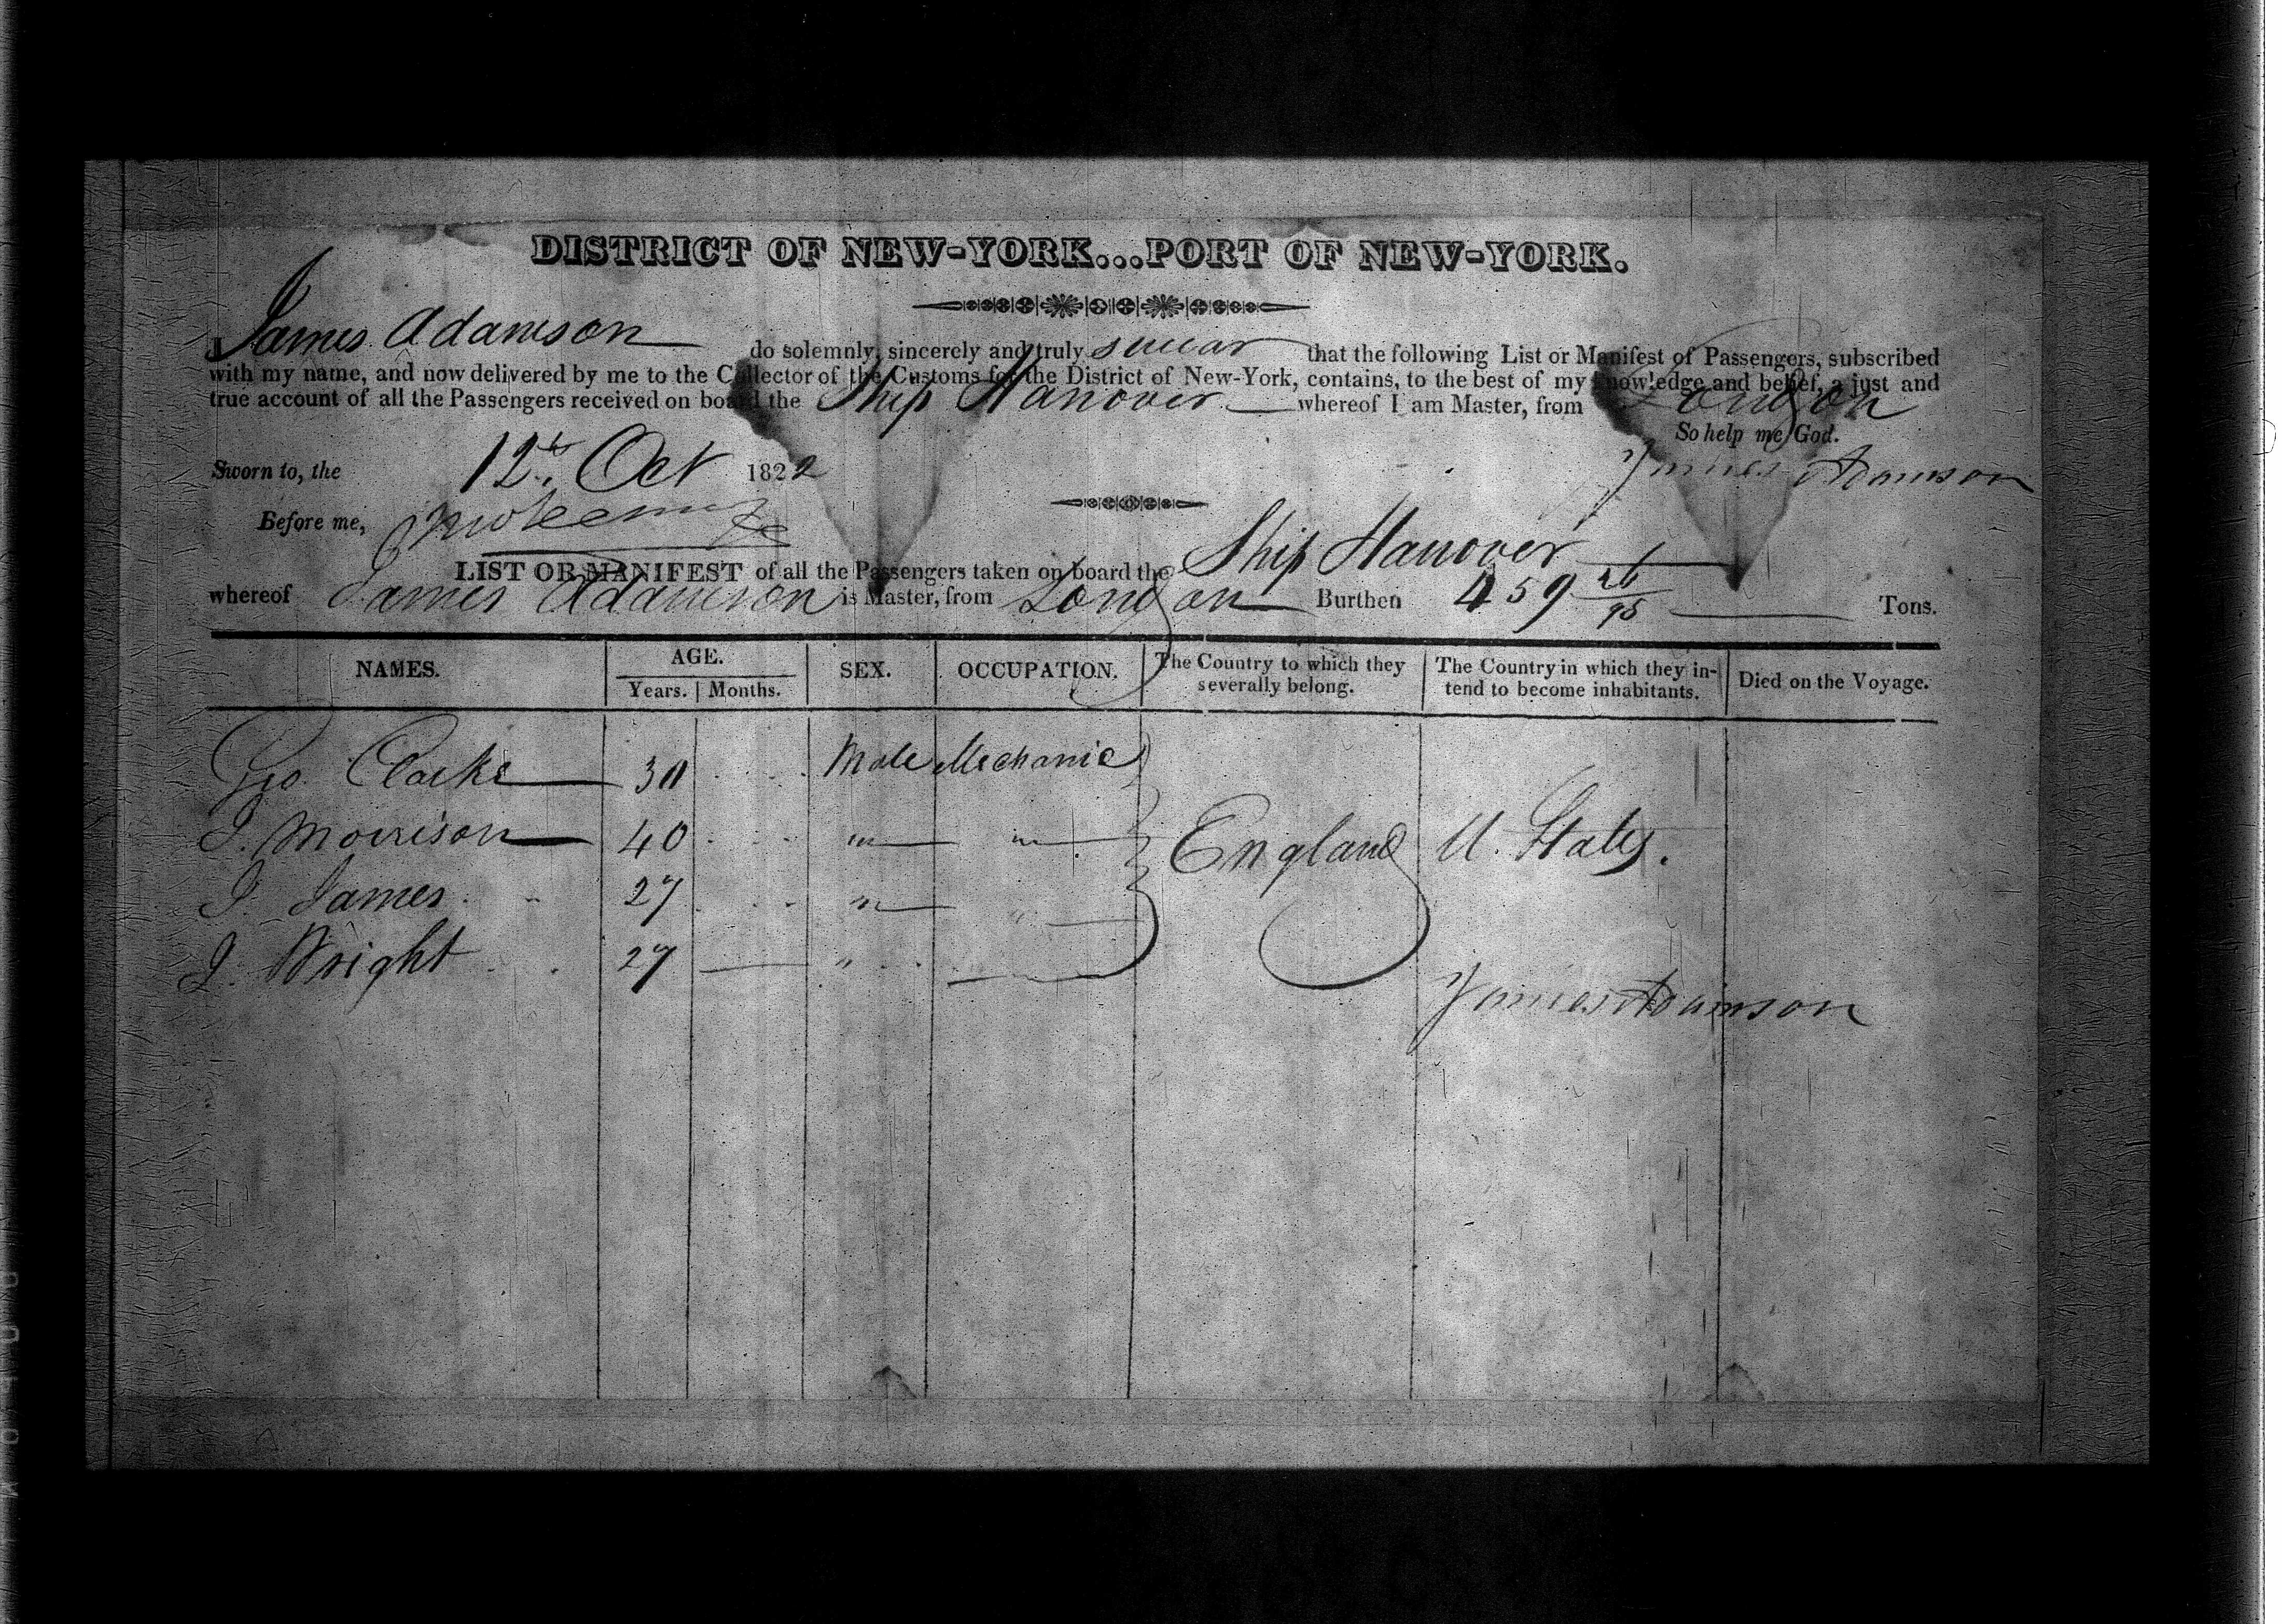 DISTRICT OF NEW-YORK...PORT OF NEW-YORK.
I James Adamson do solemnly, sincerely and truly swear that the following List or Manifest of Passengers, subscribed
with my name, and now delivered by me to the Collector of the Customs for the District of New-York, contains, to the best of my knowledge and belief, a just and
true account of all the Passengers received on board the Ship Hanover whereof I am Master, from London
So help me God.
Sworn to, the 12th Oct 1822
James Adamson
Before me,
LIST OR MANIFEST of all the Passengers taken on board the Ship Hanover
whereof James Adamson is Master, from London Burthen 459 26/95 Tons.
NAMES. AGE. SEX. OCCUPATION. The Country to which they severally belong. The Country in which they in- tend to become inhabitants. Died on the Voyage.
Years. Months.
Geo. Clarke 30 Male Mechanic
J. Morrison 40 " "
England U. States.
J. James 27 " "
J. Wright 27 "
James Adamson